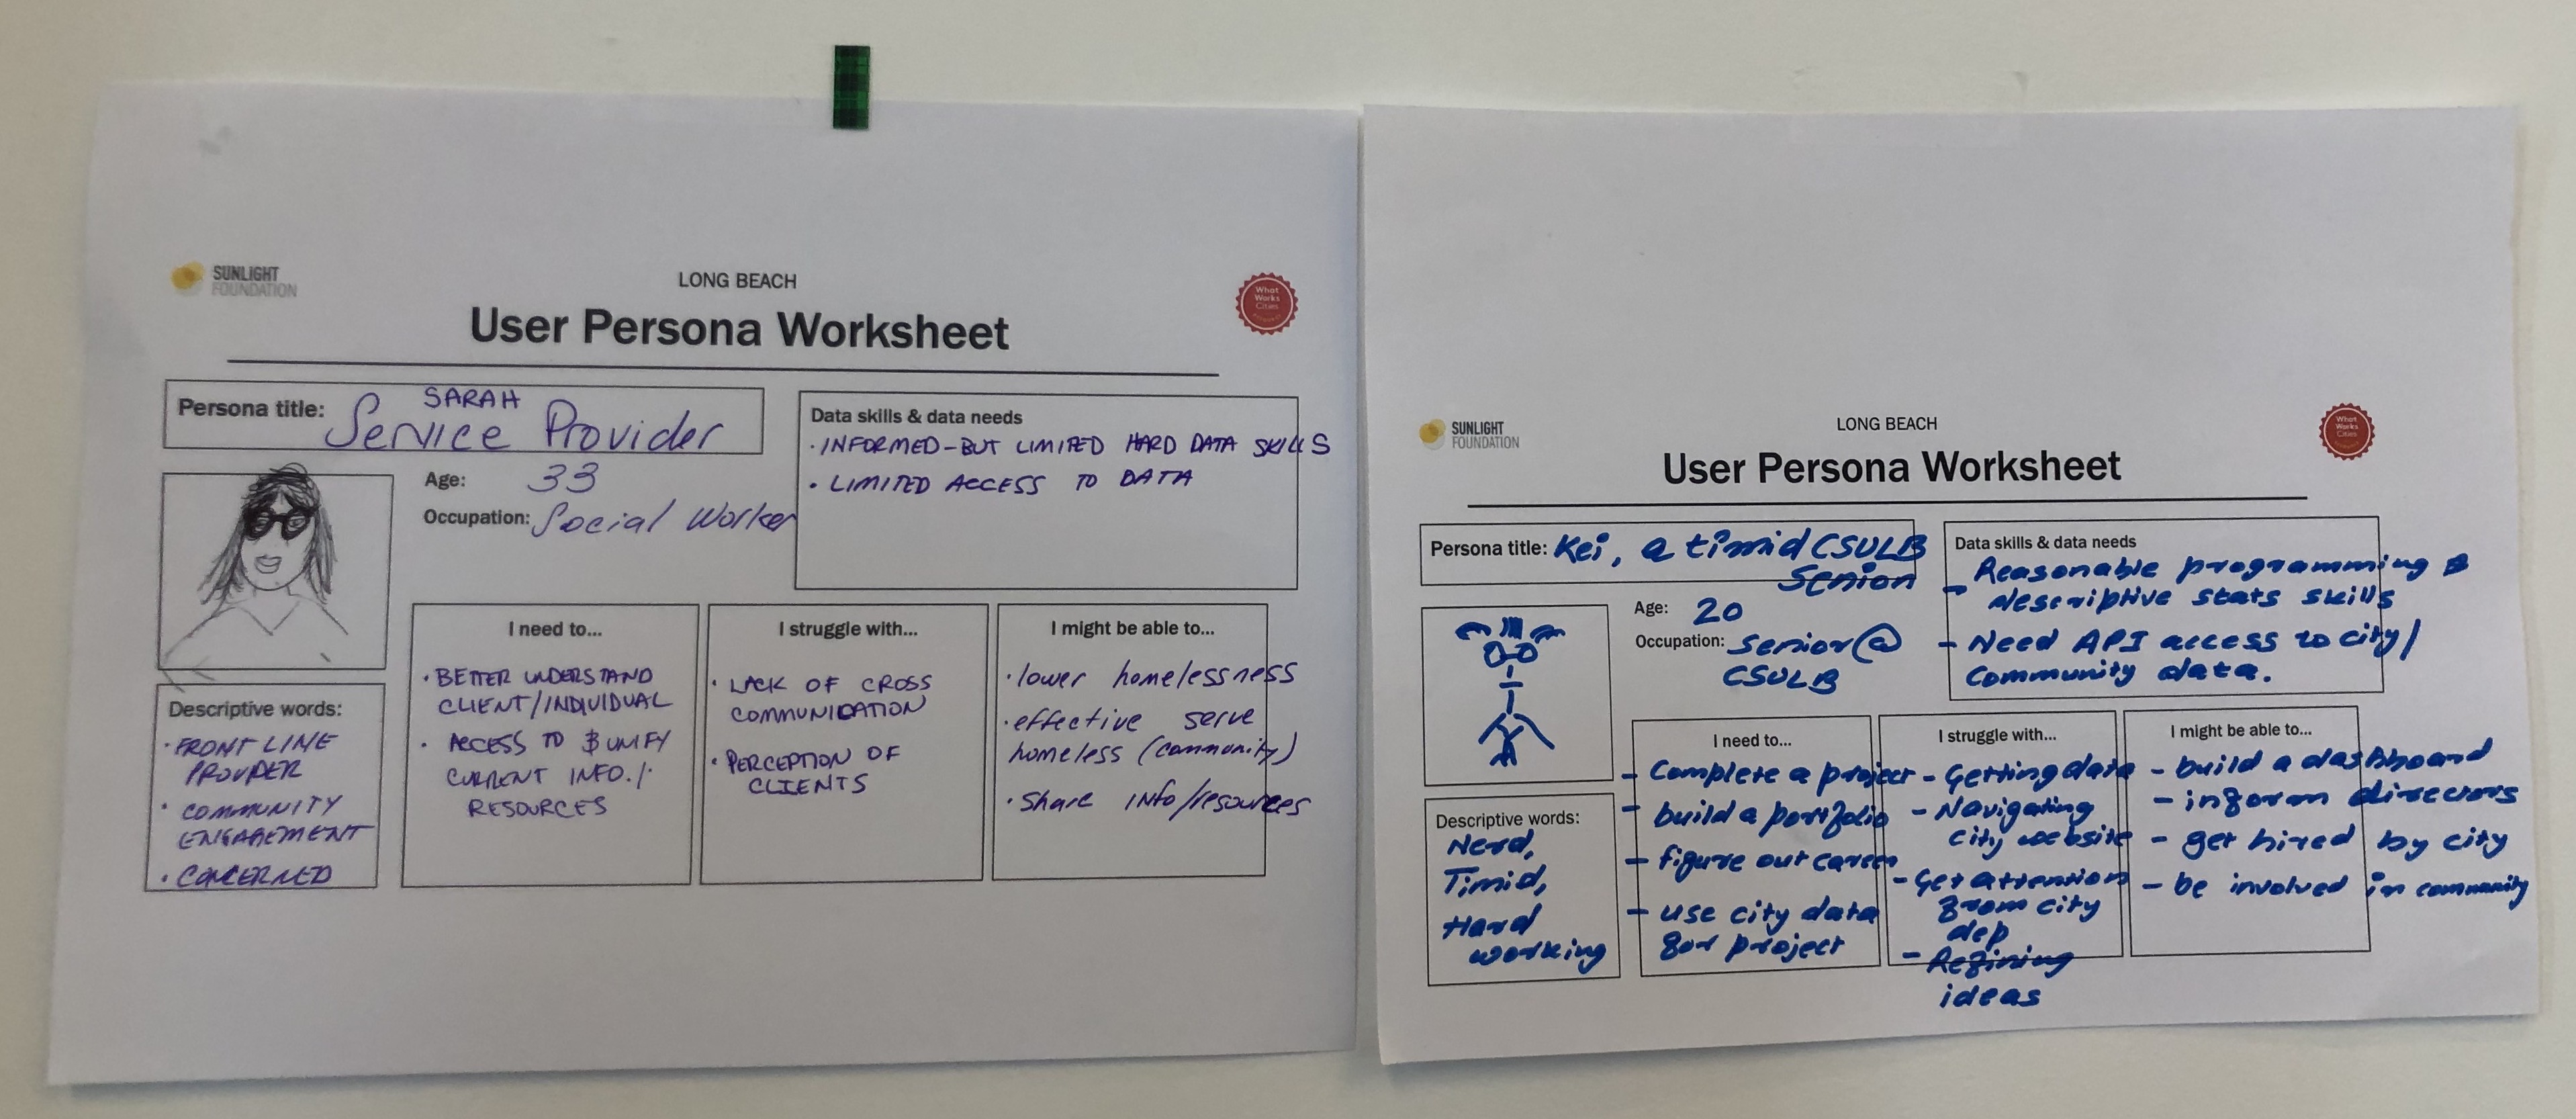 SUNLIGHT
FOUNDATION
LONG BEACH
User Persona Worksheet
What
Works
Cities
Persona title: SARAH
Service Provider
Age: 33
Occupation: Social Worker
Data skills & data needs
· INFORMED-BUT LIMITED HARD DATA SKILLS
· LIMITED ACCESS TO DATA
Descriptive words:
· FRONT LINE
PROVIDER
· COMMUNITY
ENGAGEMENT
· CONCERNED
I need to...
· BETTER UNDERSTAND
CLIENT/INDIVIDUAL
· ACCESS TO & UNIFY
CURRENT INFO./
RESOURCES
I struggle with...
· LACK OF CROSS
COMMUNICATION
· PERCEPTION OF
CLIENTS
I might be able to...
· lower homelessness
· effective serve
homeless (community)
· Share info/resources
SUNLIGHT
FOUNDATION
LONG BEACH
User Persona Worksheet
What
Works
Cities
Persona title: Kei, a timid CSULB
Senior
Age: 20
Occupation: Senior @
CSULB
Data skills & data needs
- Reasonable programming &
descriptive stats skills
- Need API access to city/
Community data.
Descriptive words:
Nerd,
Timid,
Hard
working
I need to...
- Complete a project
- build a portfolio
- figure out career
- use city data
for project
I struggle with...
- Getting data
- Navigating
city website
- Get attention
from city
dep
- Refining
ideas
I might be able to...
- build a dashboard
- inform directors
- get hired by city
- be involved in community